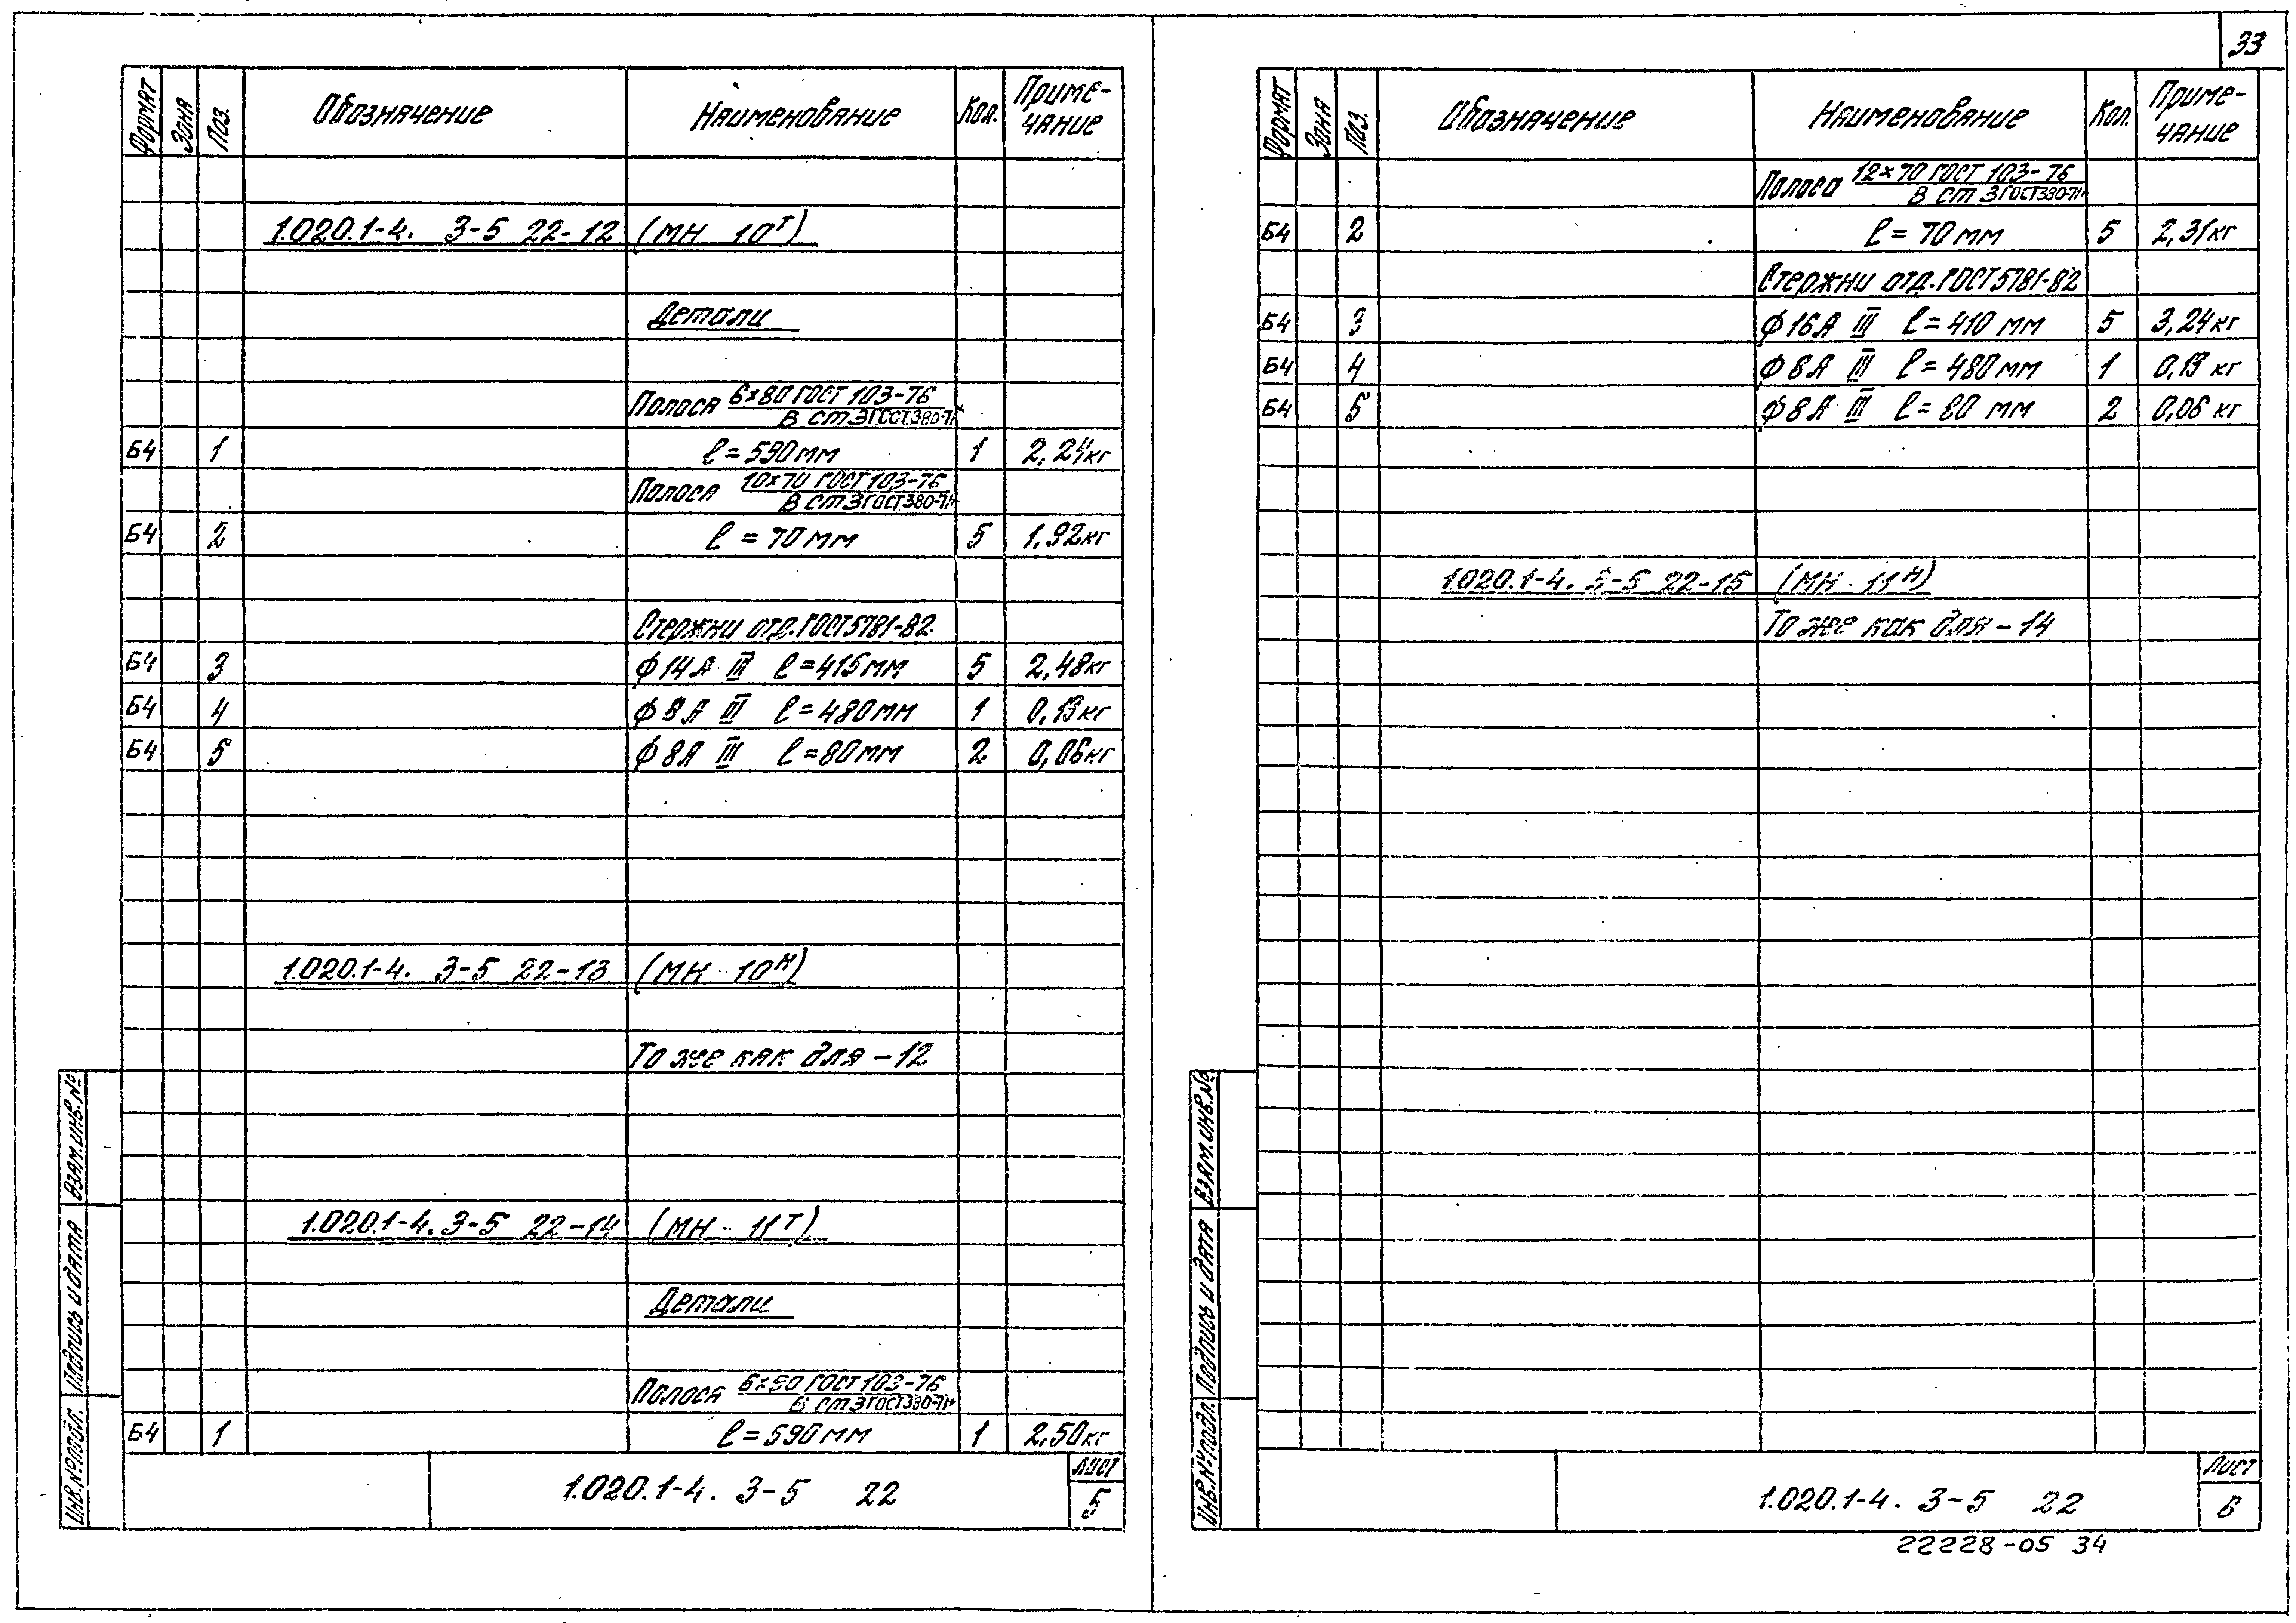 33
Формат Зона Поз. Обозначение Наименование Кол. Приме-
чание
1.020.1-4. 3-5 22-12 (МН 10Т)
Детали
Полоса 6×80 ГОСТ 103-76
В ст 3 ГОСТ 380-71*
Б4 1 ℓ=590мм 1 2,24кг
Полоса 10×70 ГОСТ 103-76
В ст 3 ГОСТ 380-71*
Б4 2 ℓ=70мм 5 1,92кг
Стержни отд. ГОСТ 5781-82
Б4 3 ф14А III ℓ=415мм 5 2,48кг
Б4 4 ф8А III ℓ=480мм 1 0,19кг
Б4 5 ф8А III ℓ=80мм 2 0,06кг
1.020.1-4. 3-5 22-13 (МН 10Н)
То же как для -12
1.020.1-4. 3-5 22-14 (МН 11Т)
Детали
Полоса 6×90 ГОСТ 103-76
В ст 3 ГОСТ 380-71*
Б4 1 ℓ=590мм 1 2,50кг
1.020.1-4. 3-5 22
Лист
5
Взам.инв.№
Подпись и дата
Инв.№подл.
Формат Зона Поз. Обозначение Наименование Кол. Приме-
чание
Полоса 12×70 ГОСТ 103-76
В ст 3 ГОСТ 380-71*
Б4 2 ℓ=70мм 5 2,31кг
Стержни отд. ГОСТ 5781-82
Б4 3 ф16А III ℓ=410мм 5 3,24кг
Б4 4 ф8А III ℓ=480мм 1 0,19 кг
Б4 5 ф8А III ℓ=80 мм 2 0,06 кг
1.020.1-4. 3-5 22-15 (МН 11Н)
То же как для -14
1.020.1-4. 3-5 22
Лист
6
Взам.инв.№
Подпись и дата
Инв.№подл.
22228-05 34